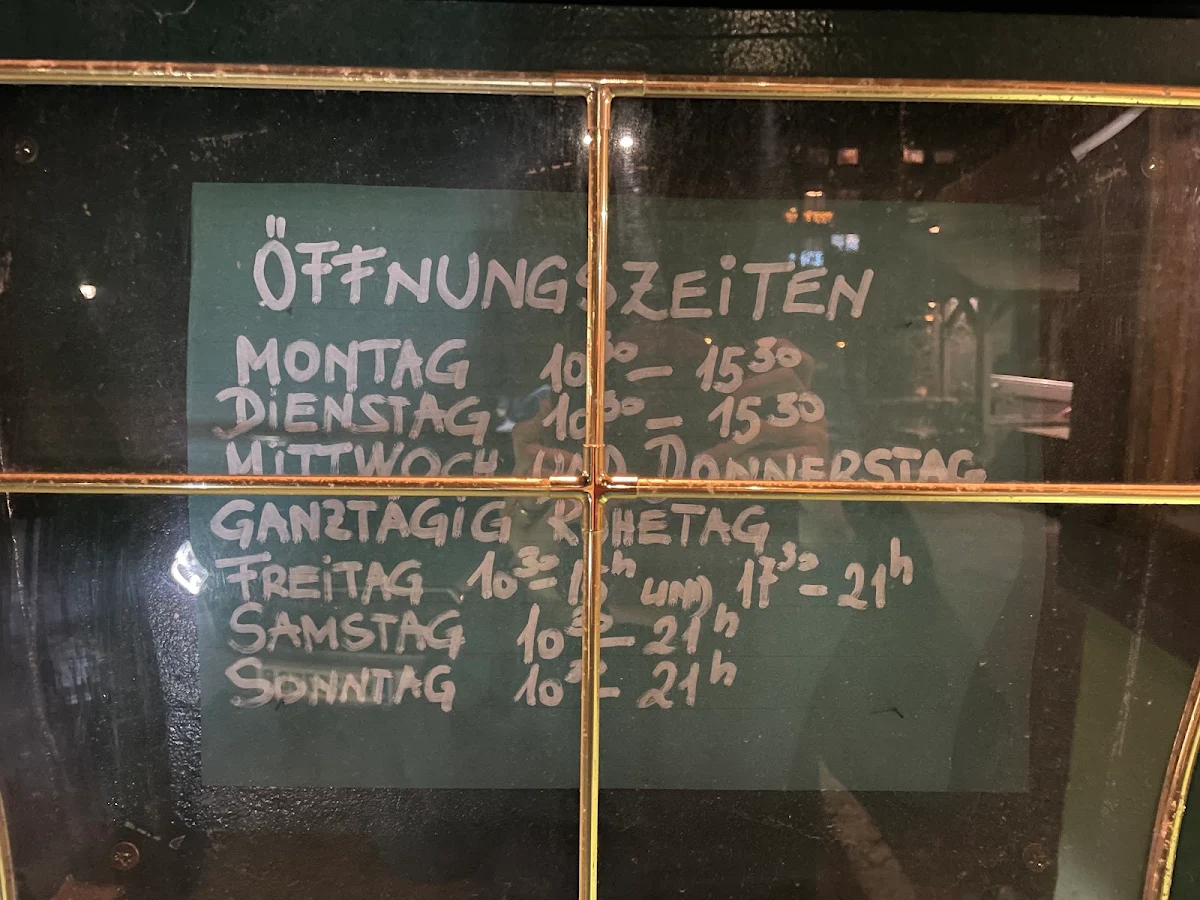 ÖFFNUNGSZEITEN
MONTAG 10³⁰ – 15³⁰
DIENSTAG 10³⁰ – 15³⁰
MITTWOCH UND DONNERSTAG
GANZTÄGIG RUHETAG
FREITAG 10³⁰ – 15ʰ UND 17³⁰ – 21ʰ
SAMSTAG 10³⁰ – 21ʰ
SONNTAG 10³⁰ – 21ʰ